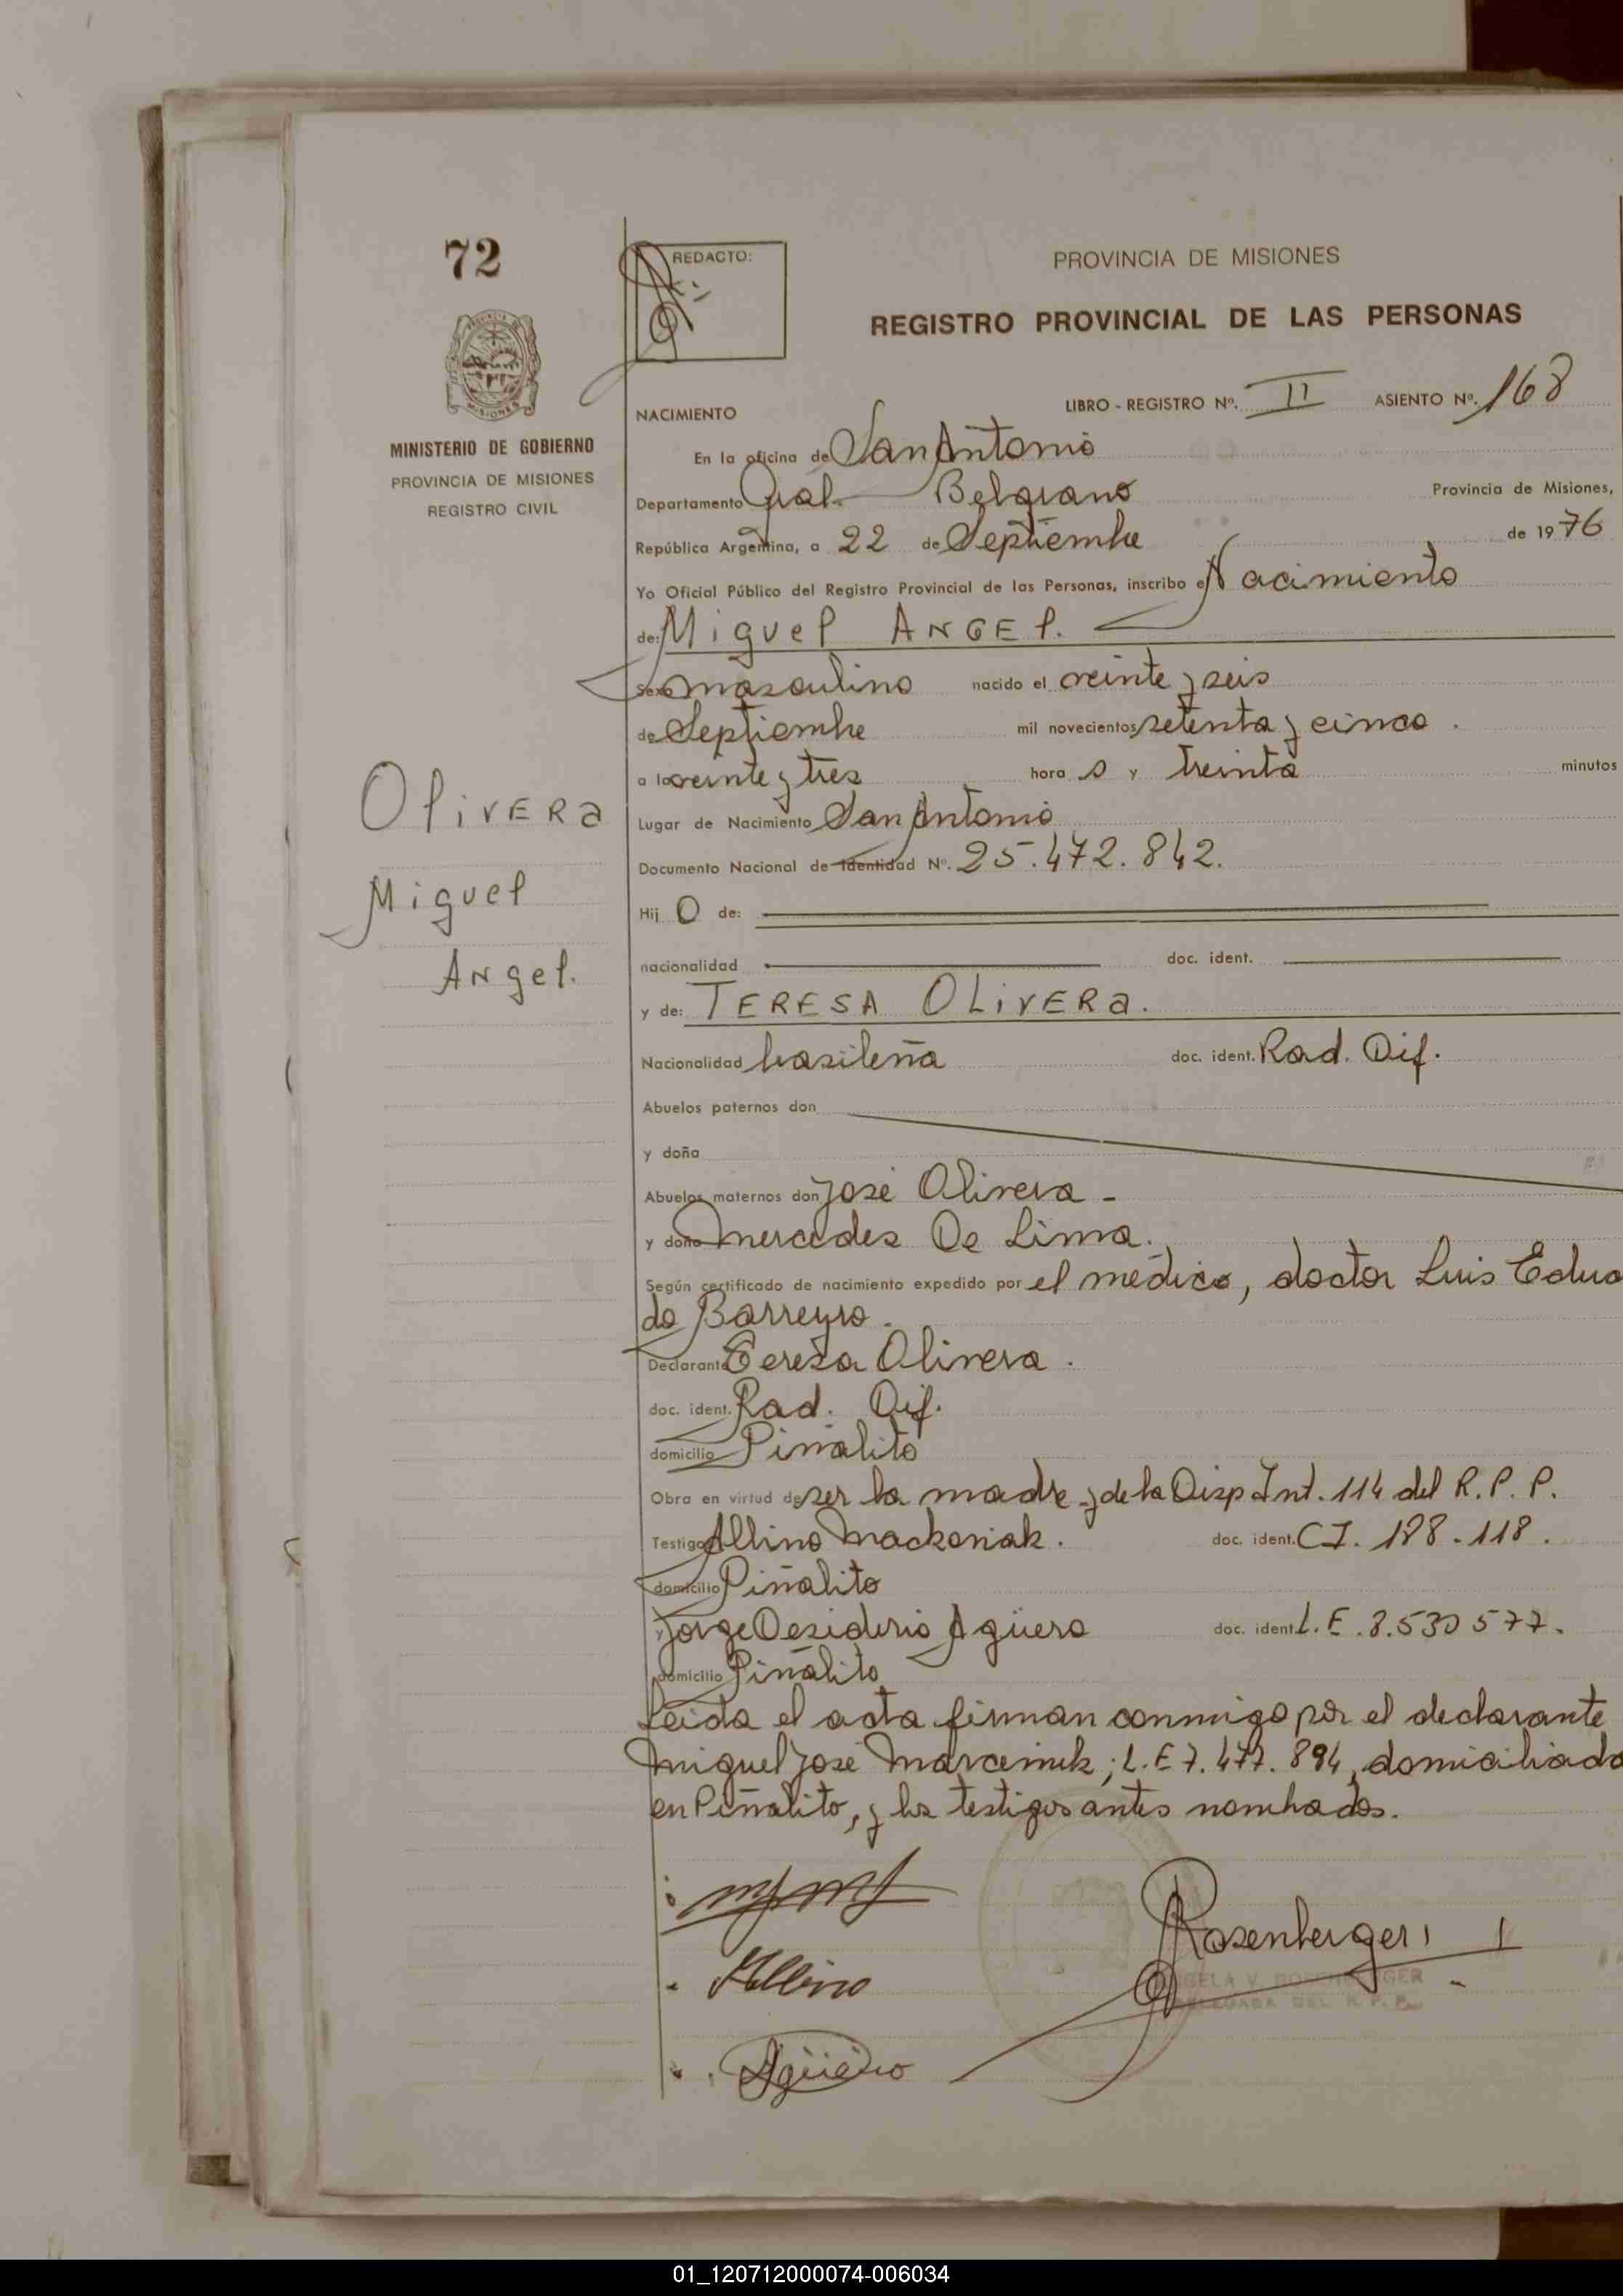 72
REDACTO:
PROVINCIA DE MISIONES
REGISTRO PROVINCIAL DE LAS PERSONAS
MISIONES
MINISTERIO DE GOBIERNO
PROVINCIA DE MISIONES
REGISTRO CIVIL
NACIMIENTO LIBRO - REGISTRO Nº. II ASIENTO Nº. 168
En la oficina de San Antonio
Departamento Gral. Belgrano Provincia de Misiones,
República Argentina, a 22 de Septiembre de 1976
Yo Oficial Público del Registro Provincial de las Personas, inscribo el Nacimiento
de: Miguel ANGEl.
Sexo masculino nacido el veinte y seis
de Septiembre mil novecientos setenta y cinco.
a las veinte y tres hora s y treinta minutos
Lugar de Nacimiento San Antonio
Documento Nacional de Identidad Nº. 25.472.842.
Hij O de:
nacionalidad doc. ident.
y de: TERESA OLiVERa.
Nacionalidad brasileña doc. ident. Rad. Dif.
Abuelos paternos don
y doña
Abuelos maternos don José Olivera -
y doña Mercedes De Lima.
Según certificado de nacimiento expedido por el médico, doctor Luis Eduar
do Barreyro.
Declarante Teresa Olivera.
doc. ident. Rad. Dif.
domicilio Piñalito
Obra en virtud de ser la madre y de la Disp. Int. 114 del R. P. P.
Testigos Albino Mackoniak. doc. ident. CI. 188.118.
domicilio Piñalito
y Jorge Desiderio Agüero doc. ident. L.E. 8.530577.
domicilio Piñalito
Leída el acta firman conmigo por el declarante
Miguel José Marceniuk; L.E 7.477.894, domiciliado
en Piñalito, y los testigos antes nombrados.
Albino
Rosenberger
Agüero
ANGELA V. ROSENBERGER
DELEGADA DEL R. P. P.
OlivERa
Miguel
Angel.
01_120712000074-006034